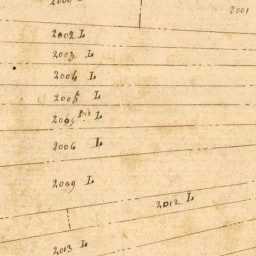 2001
2002 L
2003 L
2004 L
2005 L
2005 bis L
2006 L
2009 L
2012 L
2013 L